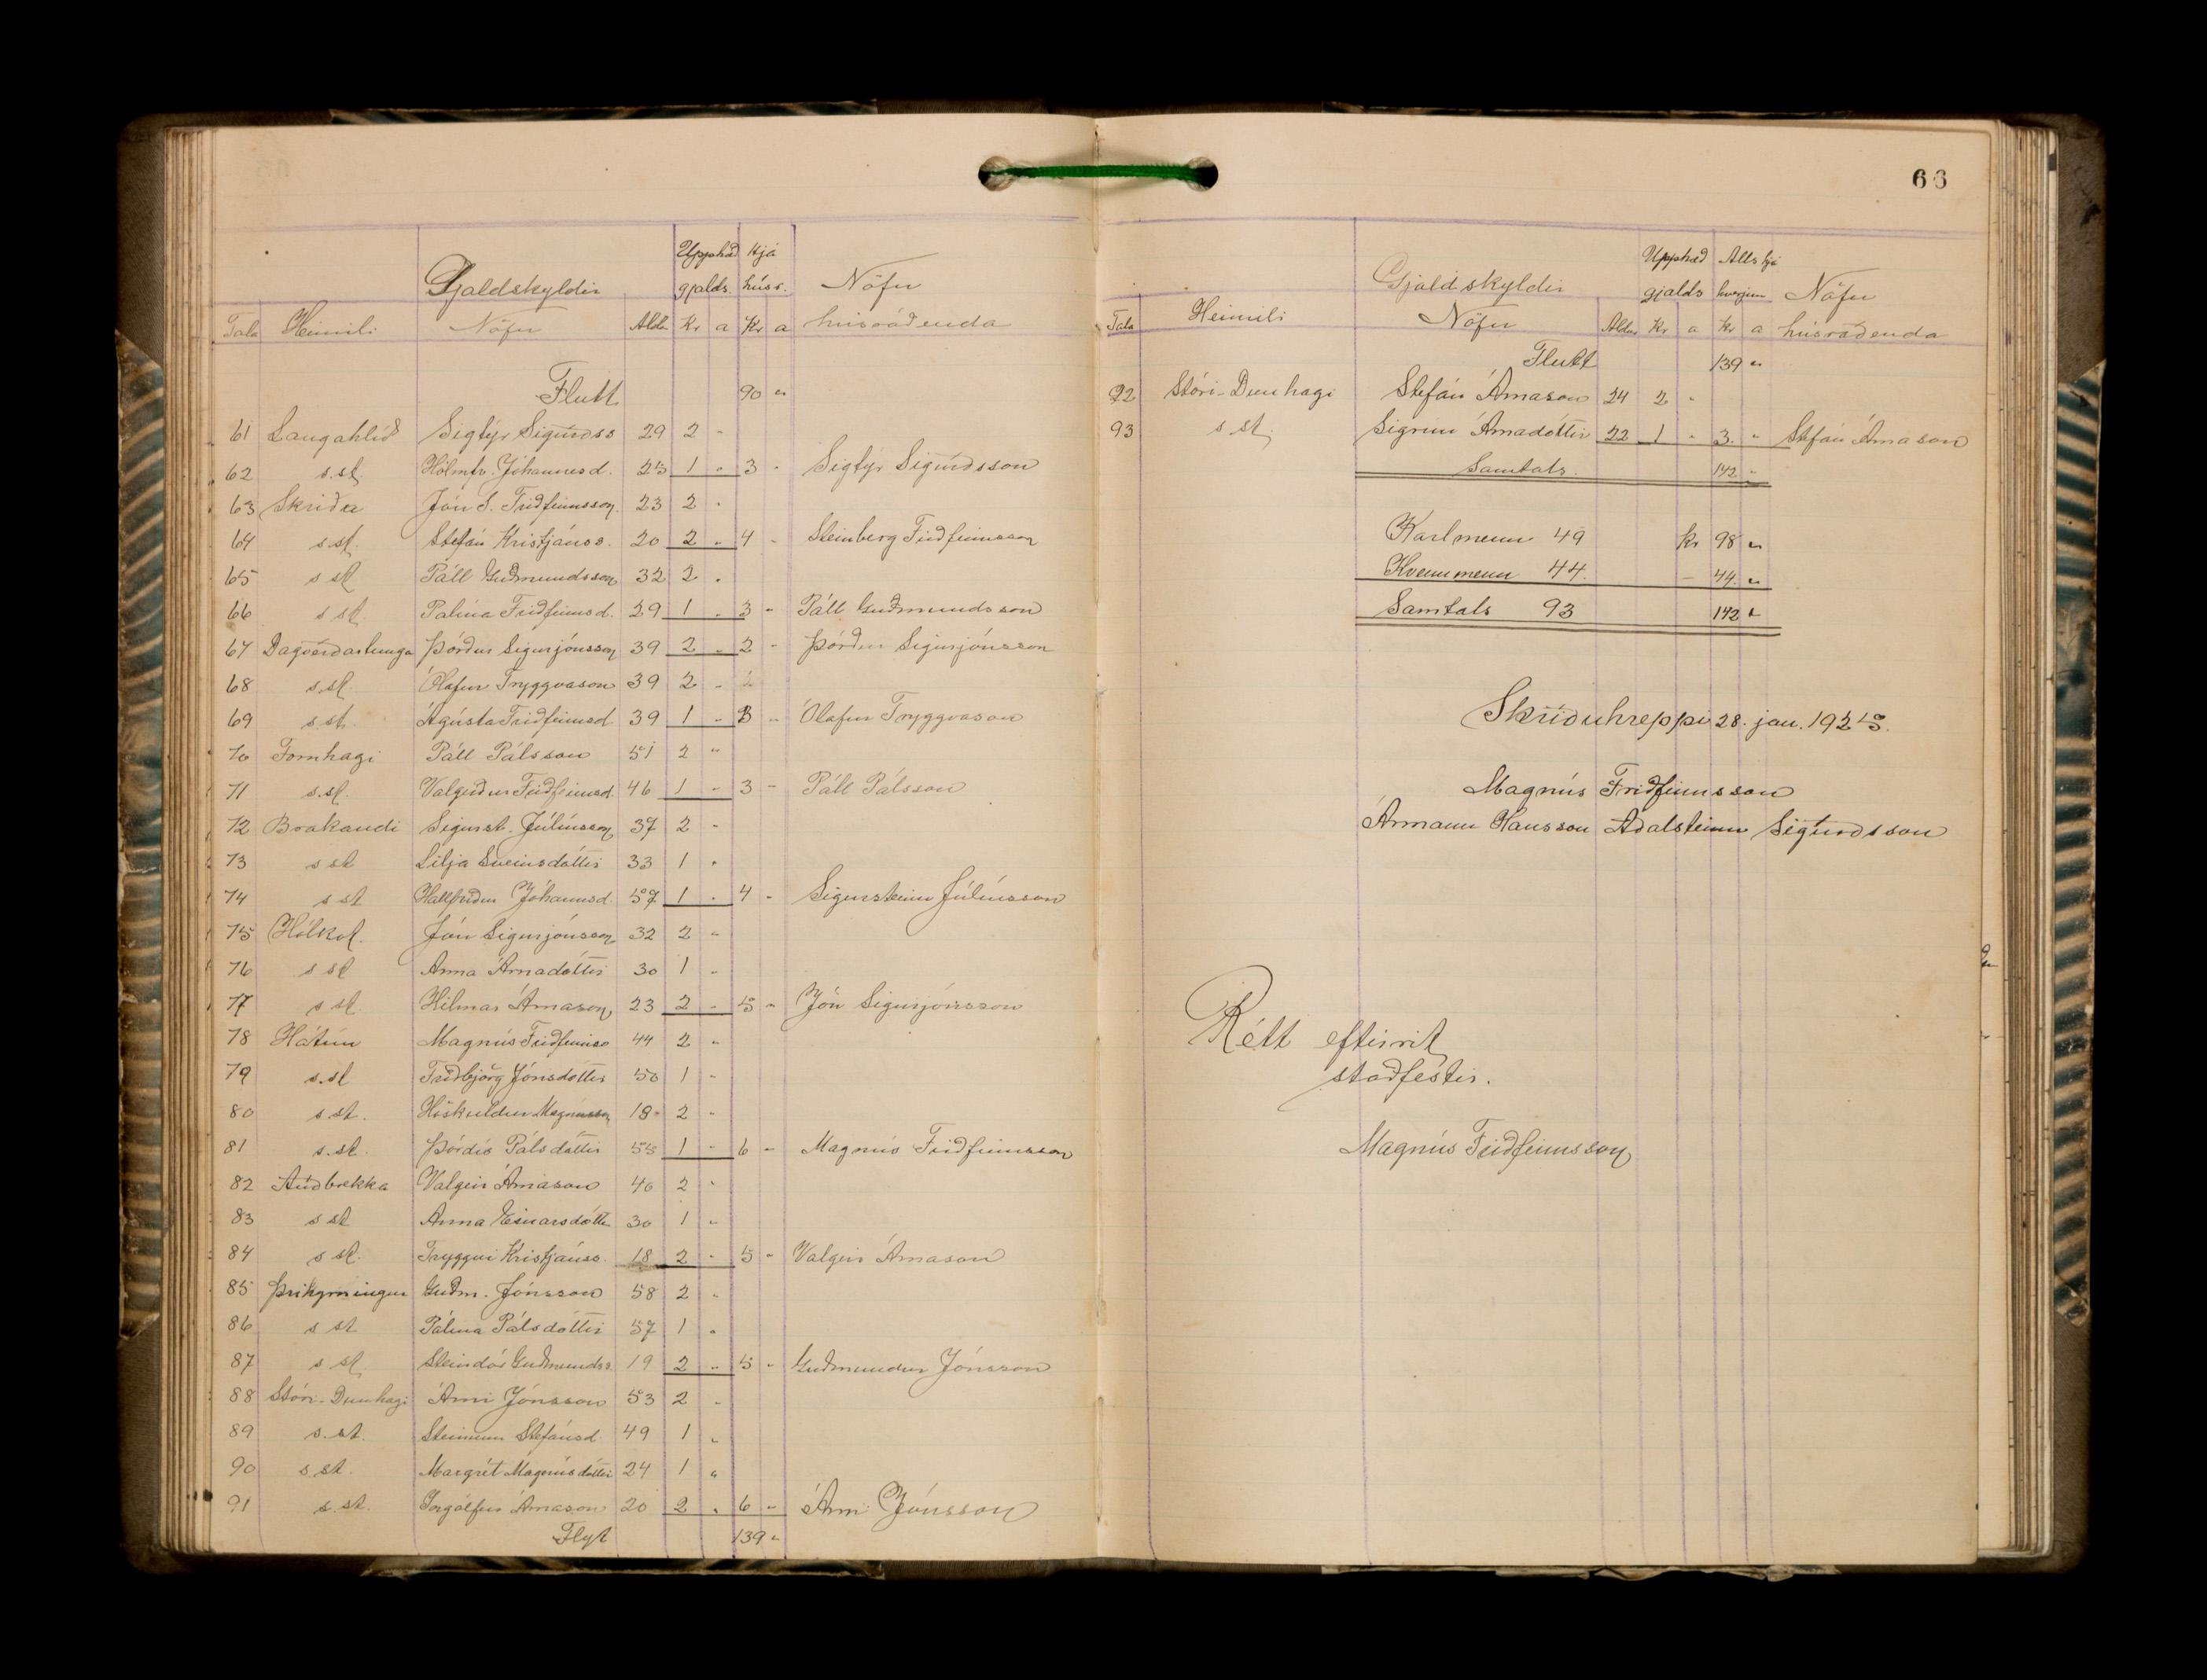 Gjaldskyldir Upphæð Hjá Nöfn
gjalds. húsr.
Tala Heimili Nöfn Aldur Kr a Kr a húsráðenda
Flutt 90 "
61 Langahlíð Sigtýr Sigurðss 29 2 -
62 s.st. Hólmfr. Jóhannesd. 23 1 - 3 - Sigtýr Sigurðsson
63 Skriða Jón S. Friðfinnsson 23 2 -
64 s.st. Stefán Kristjánss. 20 2 - 4 - Steinberg Friðfinnsson
65 s st. Páll Guðmundsson 32 2 -
66 s st. Pálína Friðfinnsd. 29 1 - 3 - Páll Guðmundsson
67 Dagverðartunga Þórður Sigurjónsson 39 2 - 2 - Þórður Sigurjónsson
68 s.st. Ólafur Tryggvason 39 2 -
69 s.st. Ágústa Friðfinnsd 39 1 - 3 - Ólafur Tryggvason
70 Fornhagi Páll Pálsson 51 2 "
71 s.st. Valgerður Friðfinnsd. 46 1 - 3 - Páll Pálsson
72 Brakandi Sigurst. Júlíusson 37 2 -
73 s st Lilja Sveinsdóttir 33 1 -
74 s st Hallfríður Jóhannsd. 57 1 - 4 - Sigursteinn Júlíusson
75 Hólkot. Jón Sigurjónsson 32 2 -
76 s st Anna Árnadóttir 30 1 -
77 s st. Hilmar Árnason 23 2 - 5 - Jón Sigurjónsson
78 Hátún Magnús Friðfinnss 44 2 -
79 s.st Friðbjörg Jónsdóttir 50 1 -
80 s.st. Höskuldur Magnússon 18 2 -
81 s.st. Þórdís Pálsdóttir 55 1 - 6 - Magnús Friðfinnsson
82 Auðbrekka Valgeir Árnason 40 2 -
83 s st Anna Einarsdóttir 30 1 -
84 s st. Tryggvi Kristjánss. 18 2 - 5 - Valgeir Árnason
85 Þríhyrningur Guðm. Jónsson 58 2 -
86 s st Pálína Pálsdóttir 57 1 -
87 s st. Steindór Guðmundss. 19 2 - 5 - Guðmundur Jónsson
88 Stóri-Dunhagi Árni Jónsson 53 2 -
89 s.st. Steinunn Stefánsd. 49 1 -
90 s.st. Margrét Magnúsdóttir 24 1 -
91 s.st. Ingólfur Árnason 20 2 - 6 - Árni Jónsson
Flyt 139 -
66
Gjaldskyldir Upphæð Alls hjá
gjalds hverjum Nöfn
Tala Heimili Nöfn Aldur Kr a Kr a húsráðenda
Flutt 139 "
92 Stóri-Dunhagi Stefán Árnason 24 2 -
93 s st. Sigrún Árnadóttir 22 1 - 3 - Stefán Árnason
Samtals. 142 -
Karlmenn 49 kr 98 "
Kvennmenn 44. - 44 "
Samtals 93 142 "
Skriðuhreppi 28. jan.
Magnús Friðfinnsson
Ármann Hansson Aðalsteinn Sigurðsson
Rétt eftirrit
staðfestir.
Magnús Friðfinnsson